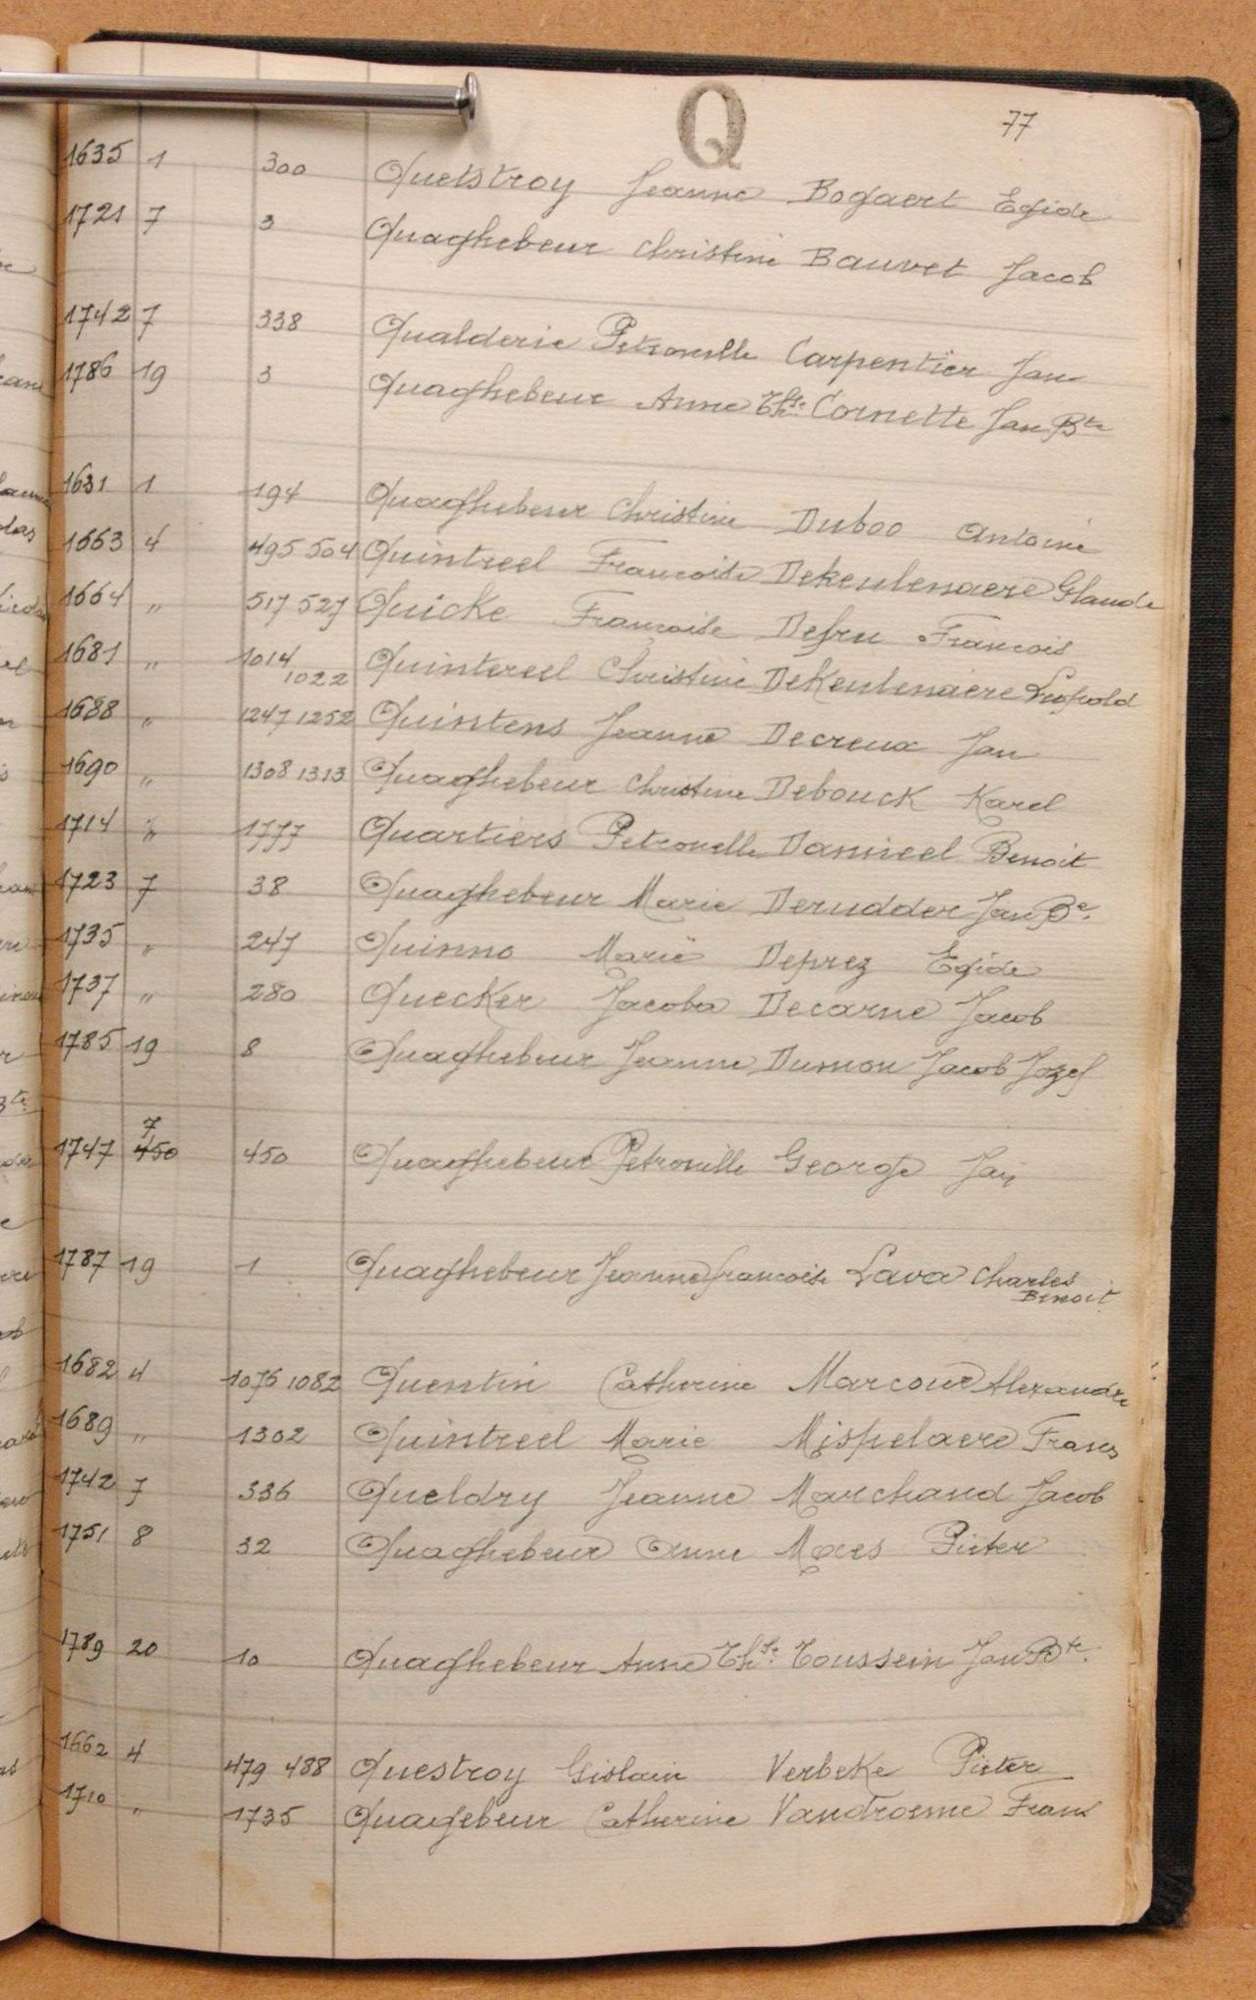 Q
77
1635 1 300 Quetstroy Jeanne Bogaert Egide
1721 7 3 Quaghebeur Christine Bauvet Jacob
1742 7 338 Qualderie Petronelle Carpentier Jan
1786 19 3 Quaghebeur Anne Thse Cornette Jan Bte
1631 1 194 Quaghebeur Christine Duboo Antoine
1663 4 495 504 Quintreel Francoise Dekeulenaere Glaude
1664 " 517 527 Quicke Francoise Defru Francois
1681 " 1014 1022 Quintereel Christine DeKeulenaere Leopold
1688 " 1247 1252 Quintens Jeanne Decreux Jan
1690 " 1308 1313 Quaghebeur Christine Debouck Karel
1714 " 1777 Quartiers Petronelle Damieel Benoit
1723 7 38 Quaghebeur Marie Derudder Jan Be.
1735 " 247 Quinno Marie Deprez Egide
1737 " 280 Quecker Jacoba Decarne Jacob
1785 19 8 Quaghebeur Jeanne Dumon Jacob Jozef
7
1747 450 450 Quaghebeur Petronille George Jan
1787 19 1 Quaghebeur Jeanne francoise Lava Charles
Benoit
1682 4 1076 1082 Quentin Catherine Marcour Alexandre
1689 " 1302 Quintreel Marie Mispelaere Frans
1742 7 336 Queldry Jeanne Marchand Jacob
1751 8 32 Quaghebeur Anne Maes Pieter
1789 20 10 Quaghebeur Anne Thse. Toussein Jan Bte.
1662 4 479 488 Questroy Gislain Verbeke Pieter
1710 " 1735 Quagebeur Catherine Vandroeme Frans